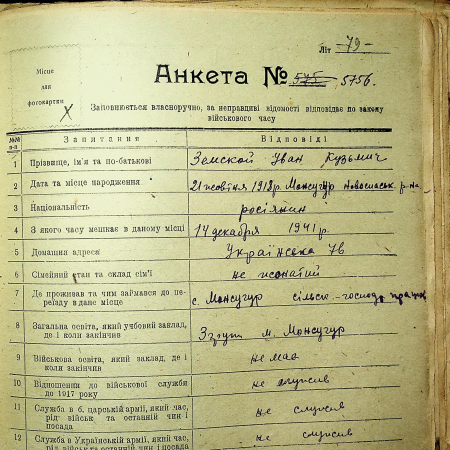 Літ -79-
Місце
для
фотокартки
X
Анкета № 575 5756.
Заповнюється власноручно, за неправдиві відомості відповідає по закону
військового часу
№№ п-п Запитання Відповіді
1 Прізвище, ім'я та по-батькові Земской Иван Кузьмич
2 Дата та місце народження 21 жовтня 1918р. Мансугур р-на
3 Національність росіянин
4 З якого часу мешкає в даному місці 14 декабря 1941 р.
5 Домашня адреса Українська 7в
6 Сімейний стан та склад сім'ї не жонатий
7 Де проживав та чим займався до пе-
реїзду в дане місце с. Мансугур сільсь-господ.
8 Загальна освіта, який учбовий заклад,
де і коли закінчив м. Мансугур
9 Військова освіта, який заклад, де і
коли закінчив не маю
10 Відношення до військової служби
до 1917 року не служив
11 Служба в б. царській армії, який час,
рід військ та останній чин і
посада не служив
12 Служба в Українській армії, який час,
рід військ та останній чин і посада не служив